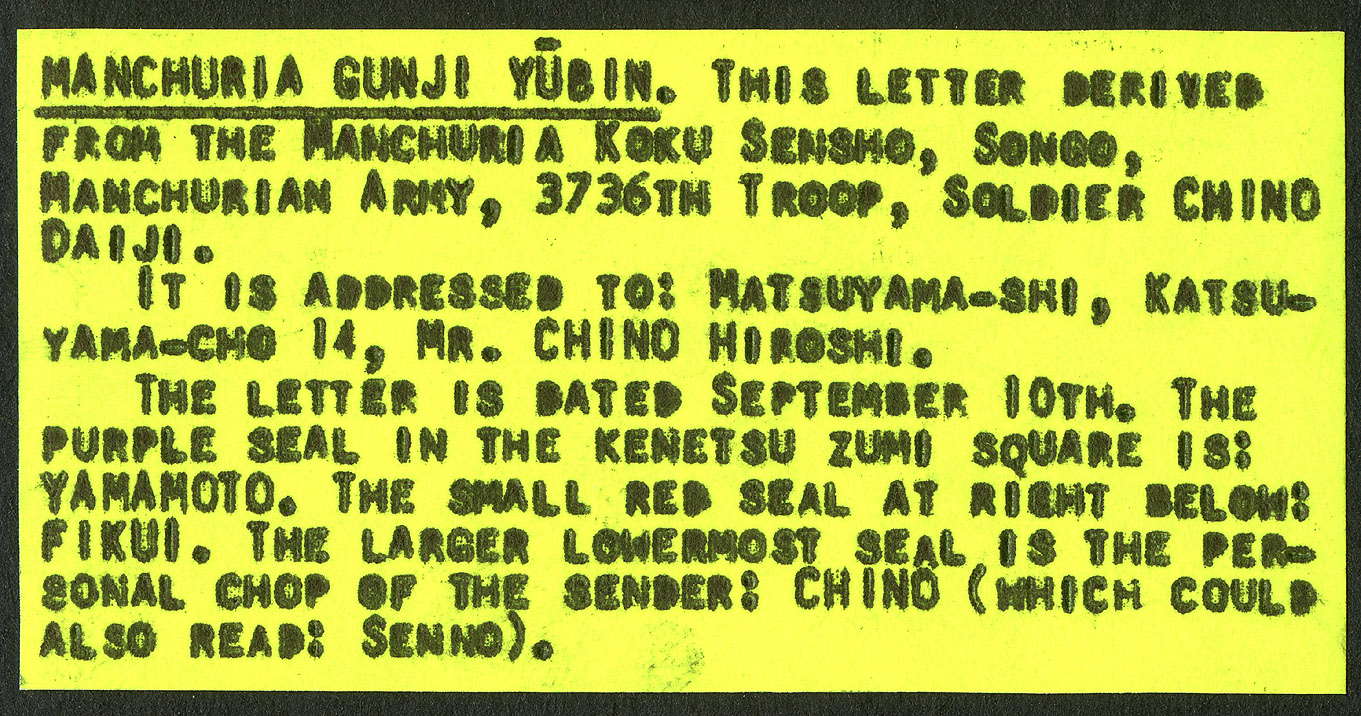 MANCHURIA GUNJI YŪBIN. THIS LETTER DERIVED
FROM THE MANCHURIA KOKU SENSHO, SONGO,
MANCHURIAN ARMY, 3736TH TROOP, SOLDIER CHINO
DAIJI.
IT IS ADDRESSED TO: MATSUYAMA-SHI, KATSU-
YAMA-CHO 14, MR. CHINO HIROSHI.
THE LETTER IS DATED SEPTEMBER 10TH. THE
PURPLE SEAL IN THE KENETSU ZUMI SQUARE IS:
YAMAMOTO. THE SMALL RED SEAL AT RIGHT BELOW:
FIKUI. THE LARGER LOWERMOST SEAL IS THE PER-
SONAL CHOP OF THE SENDER: CHINO (WHICH COULD
ALSO READ: SENNO).